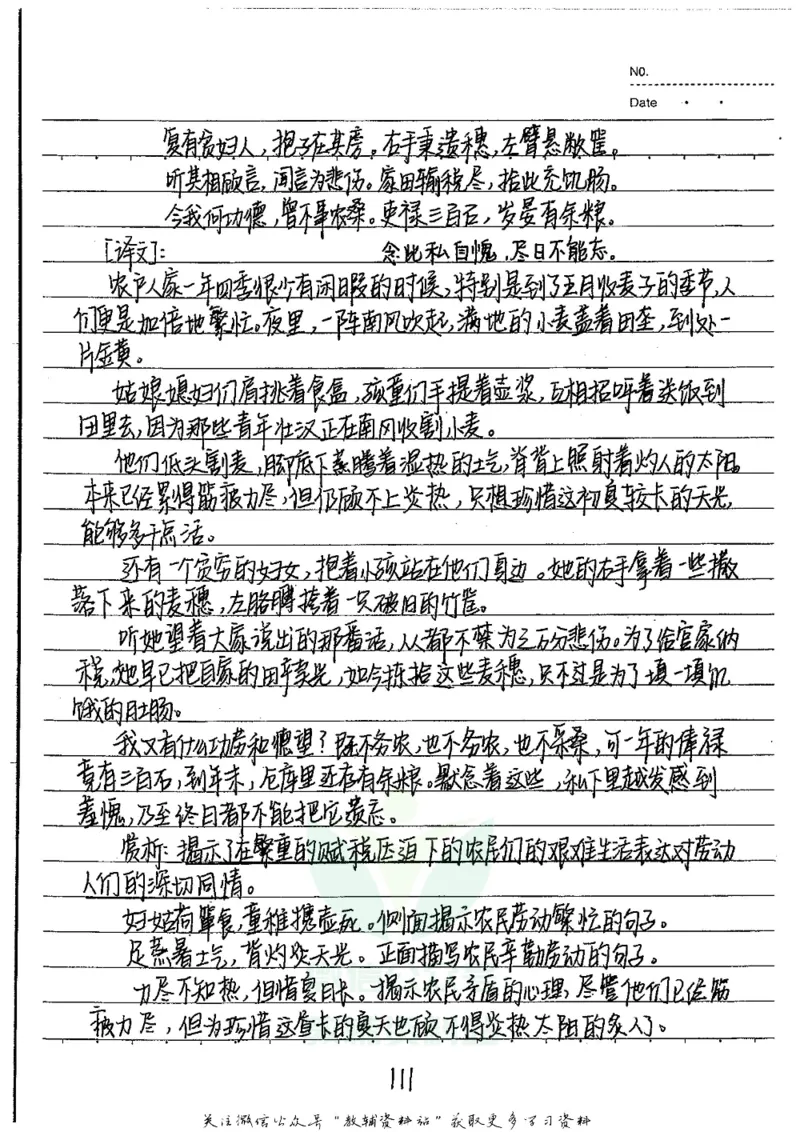 NO.
Date
复有贫妇人，抱子在其旁。右手秉遗穗，左臂悬敝筐。
听其相顾言，闻言为悲伤。家田输税尽，拾此充饥肠。
今我何功德，曾不事农桑。吏禄三百石，岁晏有余粮。
[译文]：念此私自愧，尽日不能忘。
农户人家一年四季很少有闲暇的时候，特别是到了五月收麦子的季节，人
们更是加倍地繁忙。夜里，一阵南风吹起，满地的小麦盖着田垄，到处一
片金黄。
姑娘媳妇们肩挑着食盒，孩童们手提着壶浆，互相招呼着送饭到
田里去，因为那些青年壮汉正在南冈收割小麦。
他们低头割麦，脚底下蒸腾着湿热的土气，脊背上照射着灼人的太阳。
本来已经累得筋疲力尽，但仍顾不上炎热，只想珍惜这初夏较长的天光，
能够多干点活。
还有一个贫穷的妇女，抱着小孩站在他们身边。她的右手拿着一些撒
落下来的麦穗，左胳膊挎着一只破旧的竹筐。
听她望着大家说出的那番话，人都不禁为三万分悲伤。为了给官家纳
税，她早已把自家的田卖光，如今拣拾这些麦穗，只不过是为了填一填饥
饿的肚肠。
我又有什么功劳和德望？既不务农，也不务农，也不采桑，可一年的俸禄
竟有三百石，到年末，仓库里还存有余粮。默念着这些，私下里越发感到
羞愧，乃至终日都不能把它遗忘。
赏析：揭示了在繁重的赋税压迫下的农居们的艰难生活表达对劳动
人们的深切同情。
妇姑荷箪食，童稚携壶浆。侧面揭示农民劳动繁忙的句子。
足蒸暑土气，背灼炎天光。正面描写农民辛勤劳动的句子。
力尽不知热，但惜夏日长。揭示农民矛盾的心理，尽管他们已经筋
疲力尽，但为珍惜这昼长的夏天也顾不得炎热太阳的炙人了。
111
关注微信公众号"教辅资料站"获取更多学习资料